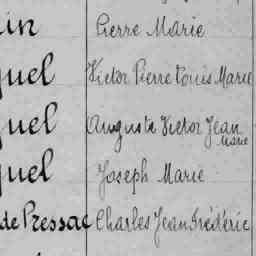 in Pierre Marie
quel Victor Pierre Louis Marie
quel Auguste Victor Jean
Marie
quel Joseph Marie
de Pressac Charles Jean Frédéric